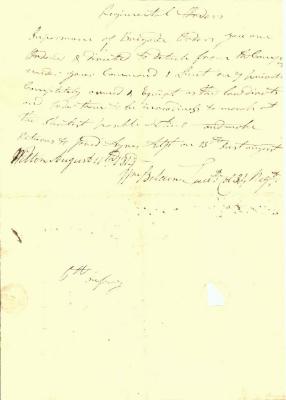 Regimental Orders
In persuance of Brigade Orders, you are
Orderd & directed to detach from the Company
under your Command 1 Serjt on 7 privates
Completely armed & Equipt as the law directs
and order them to be in readiness to march at
the Shortest possible notice and make
Returns to Adjt on 15th Inst August
Wilton August 11th
Wm Lieut. Col 24 Regt.
6th Company